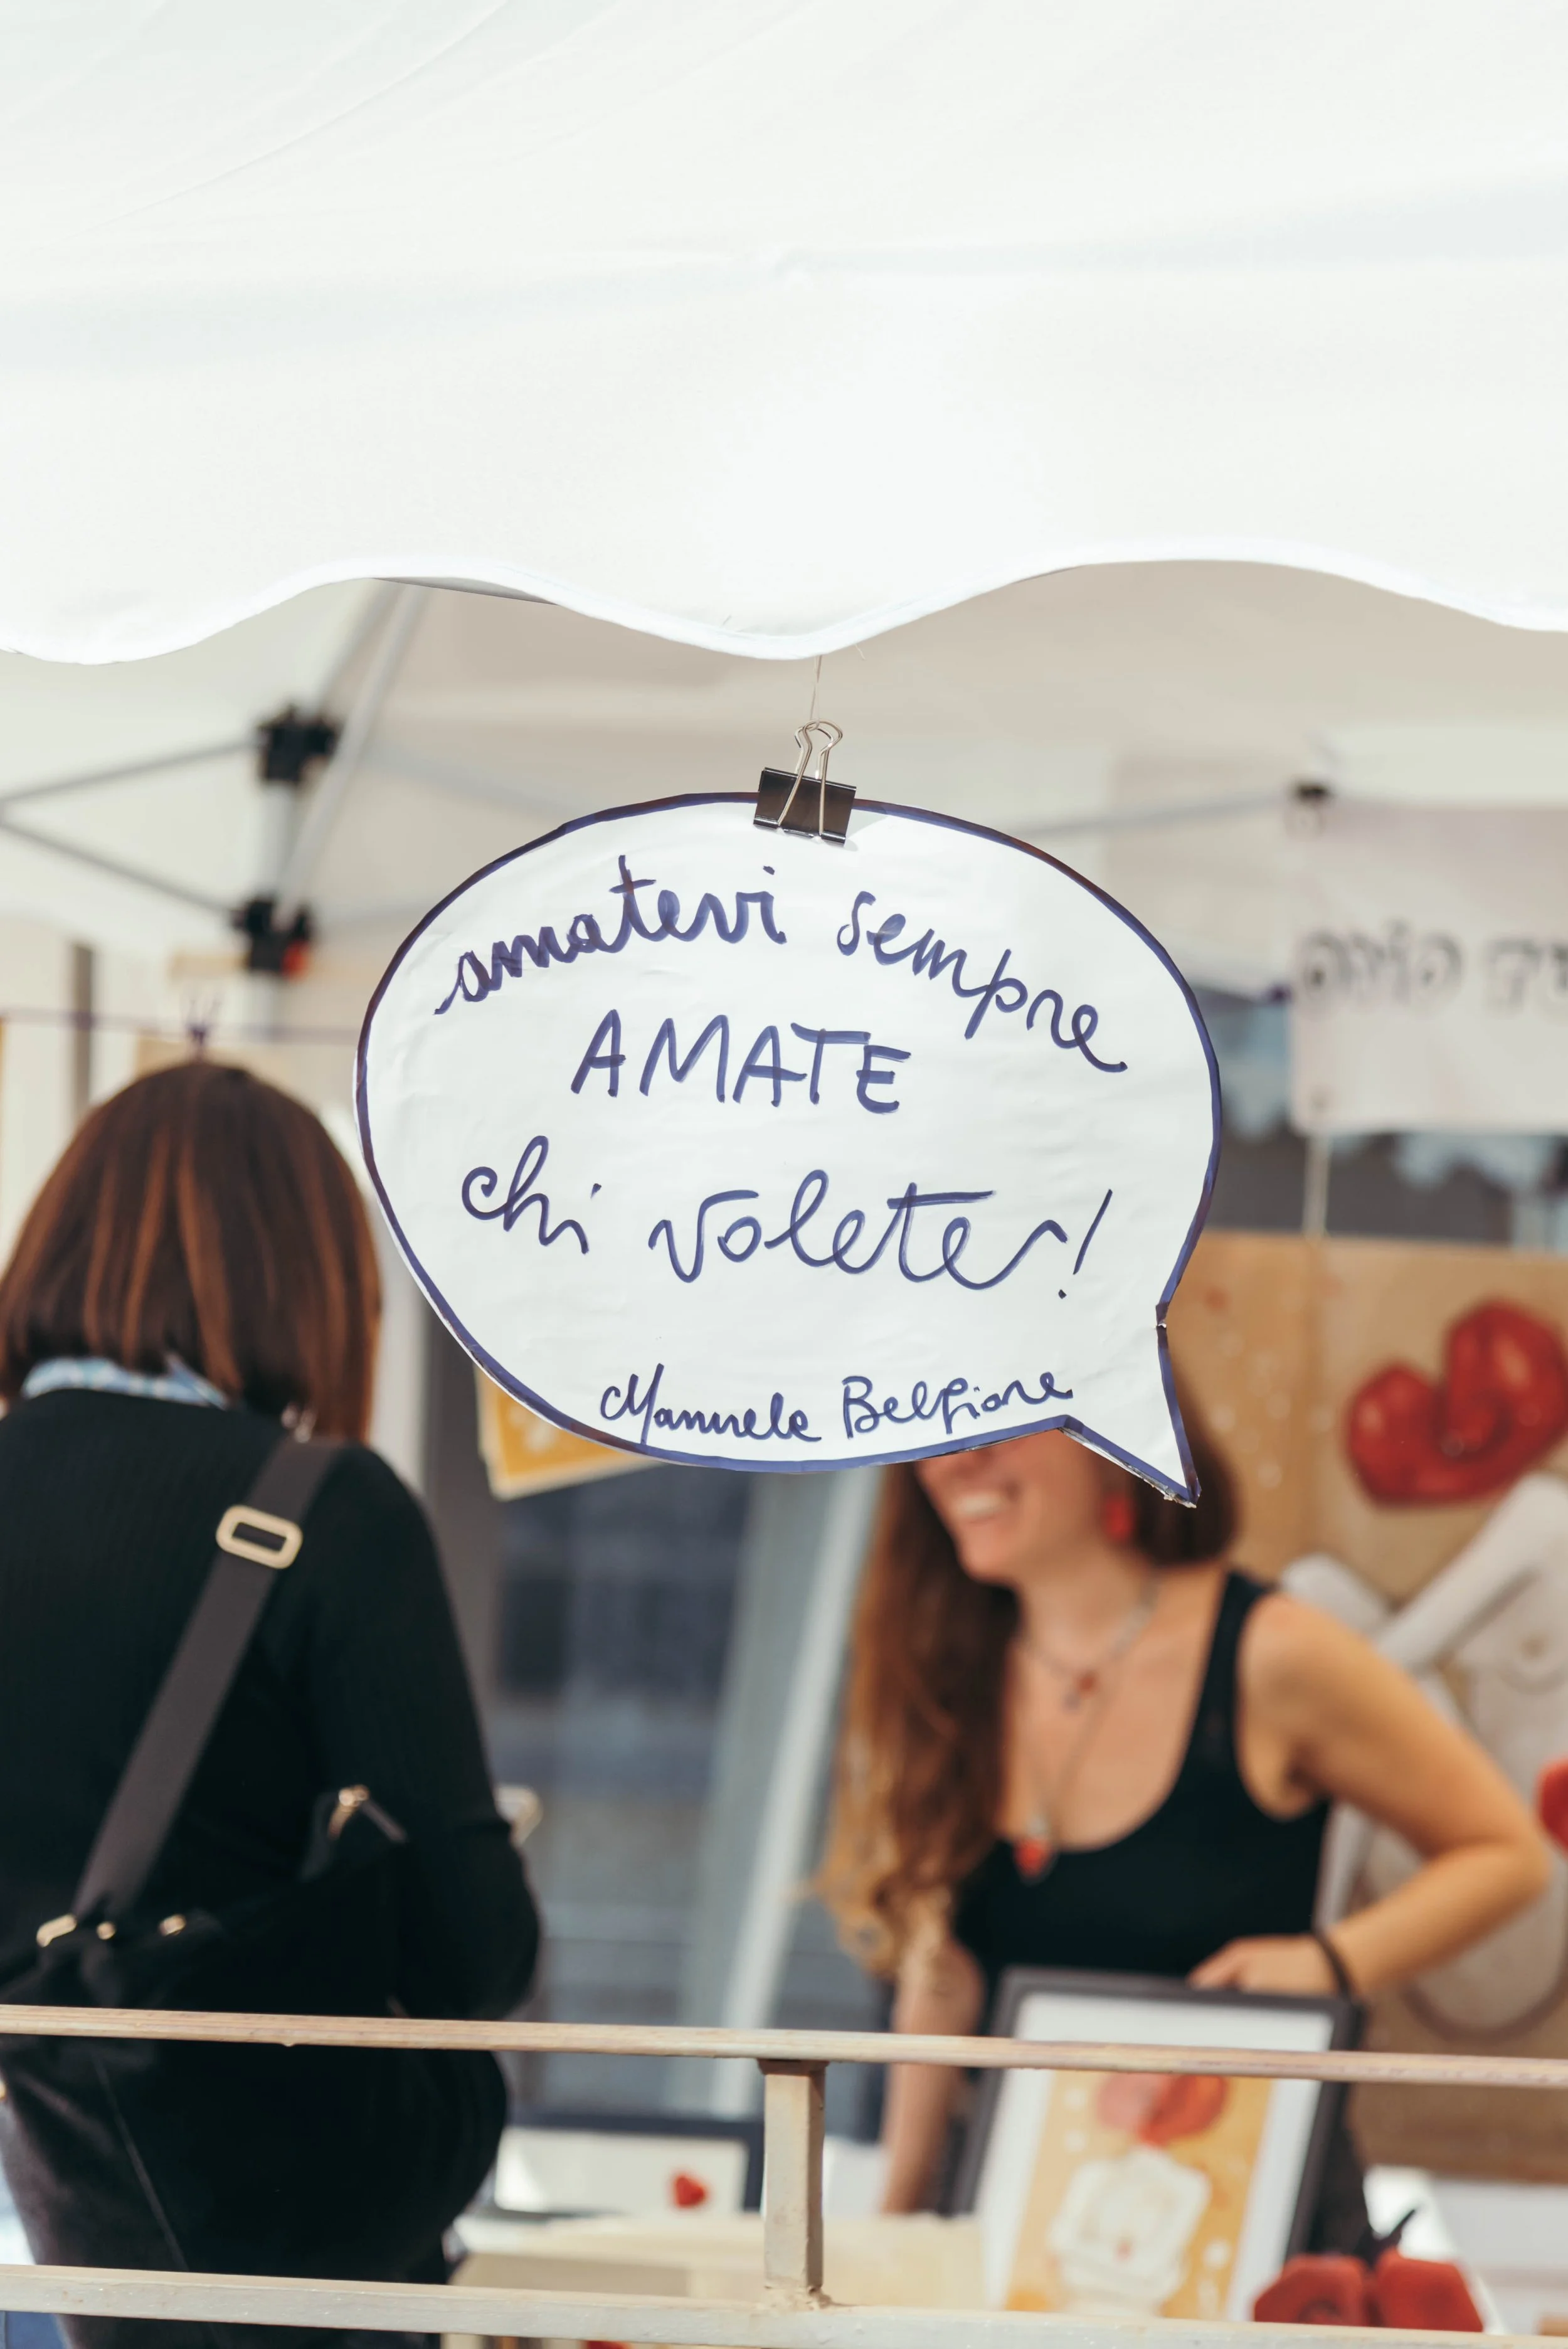 amatevi sempre
AMATE
chi volete!
Manuele Belfiore